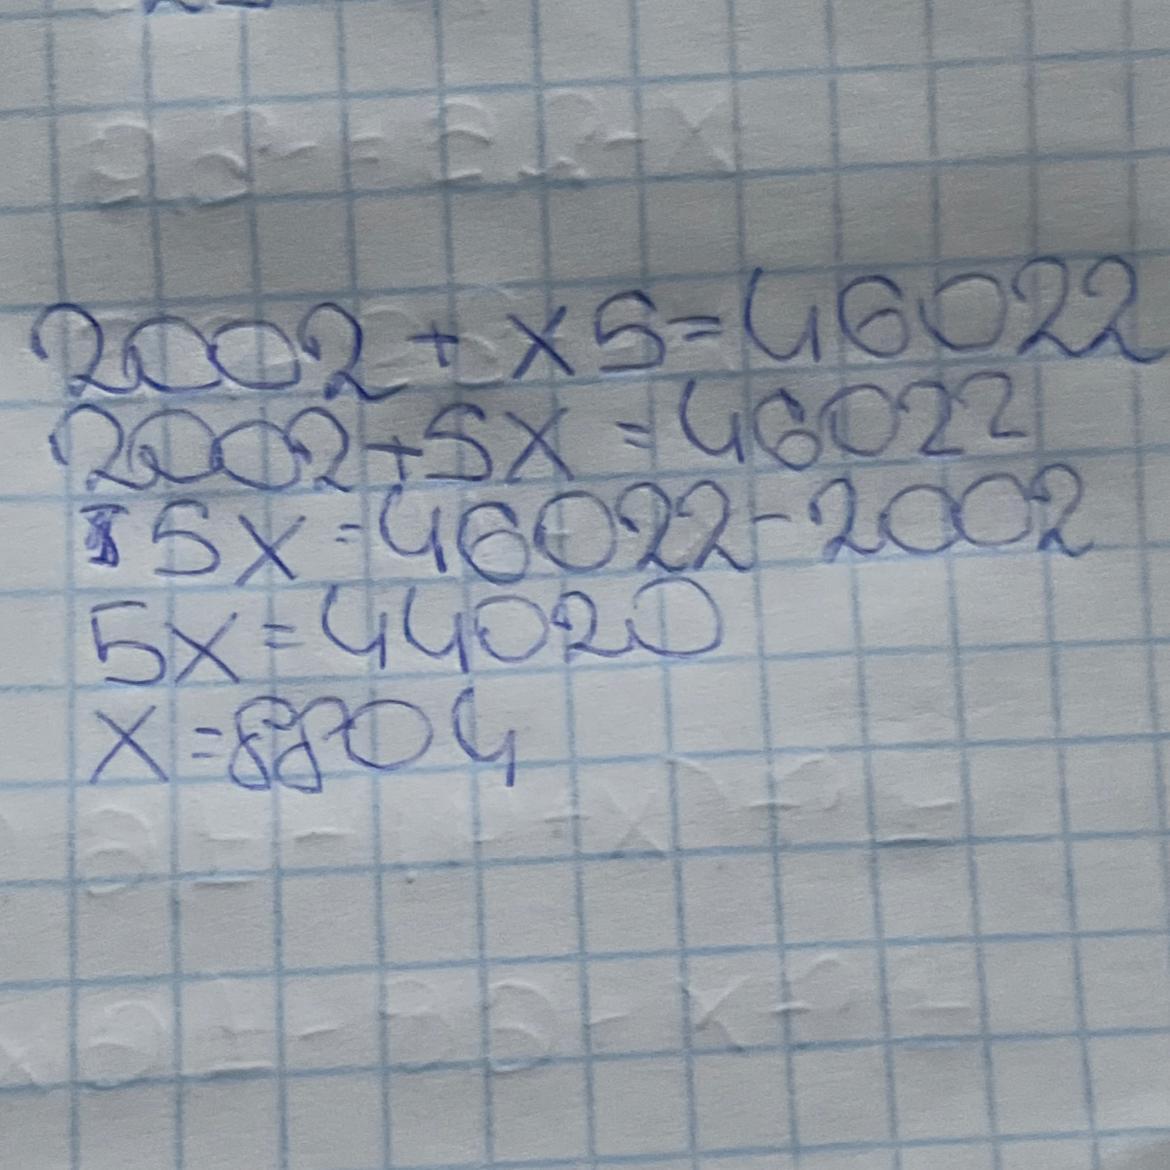 2002 + x5 = 46022
2002 + 5x = 46022
5x = 46022 - 2002
5x = 44020
x = 8804